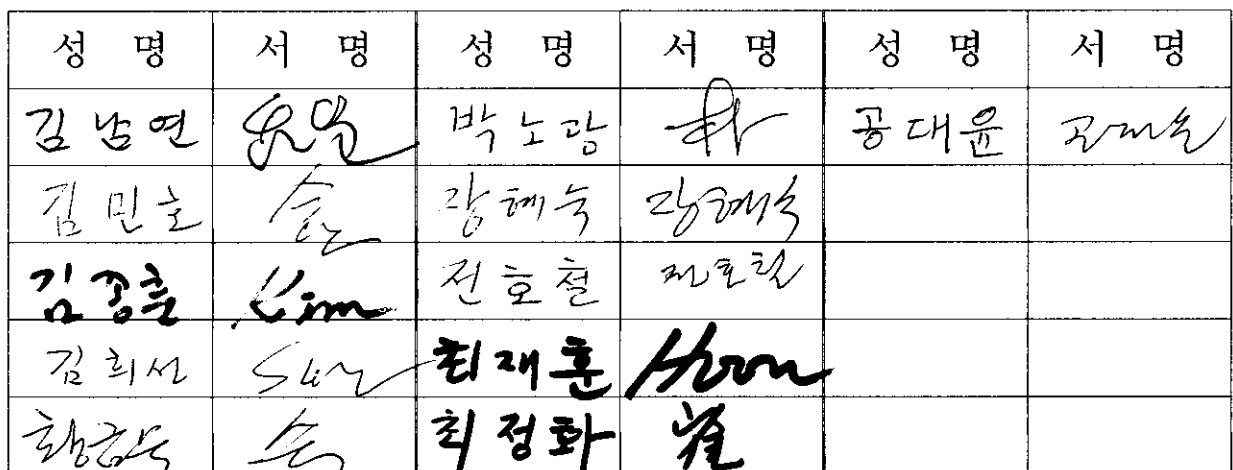 성 명 서 명 성 명 서 명 성 명 서 명
김남연 박노광 공대윤
김민호 강혜숙 강혜숙
김종훈 Kim 전호철 전호철
김희선 Sun 최재훈 Hoon
최정화